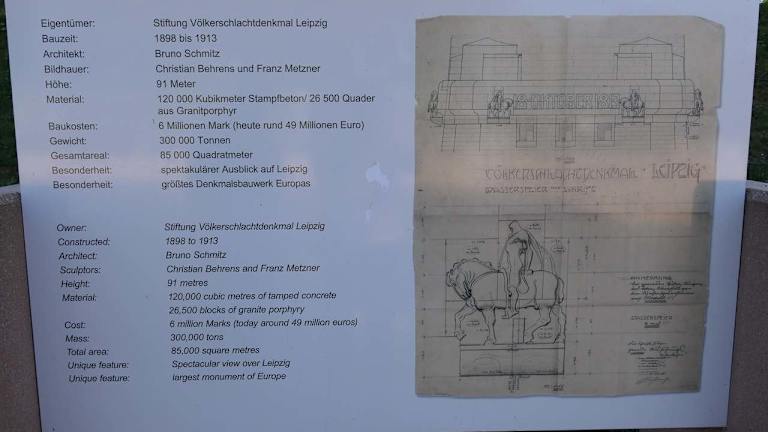 Eigentümer: Stiftung Völkerschlachtdenkmal Leipzig
Bauzeit: 1898 bis 1913
Architekt: Bruno Schmitz
Bildhauer: Christian Behrens und Franz Metzner
Höhe: 91 Meter
Material: 120 000 Kubikmeter Stampfbeton/ 26 500 Quader
aus Granitporphyr
Baukosten: 6 Millionen Mark (heute rund 49 Millionen Euro)
Gewicht: 300 000 Tonnen
Gesamtareal: 85 000 Quadratmeter
Besonderheit: spektakulärer Ausblick auf Leipzig
Besonderheit: größtes Denkmalsbauwerk Europas
Owner: Stiftung Völkerschlachtdenkmal Leipzig
Constructed: 1898 to 1913
Architect: Bruno Schmitz
Sculptors: Christian Behrens and Franz Metzner
Height: 91 metres
Material: 120,000 cubic metres of tamped concrete
26,500 blocks of granite porphyry
Cost: 6 million Marks (today around 49 million euros)
Mass: 300,000 tons
Total area: 85,000 square metres
Unique feature: Spectacular view over Leipzig
Unique feature: largest monument of Europe
18·OKTOBER·1913
VÖLKERSCHLACHTDENKMAL · LEIPZIG
WASSERSPEIER